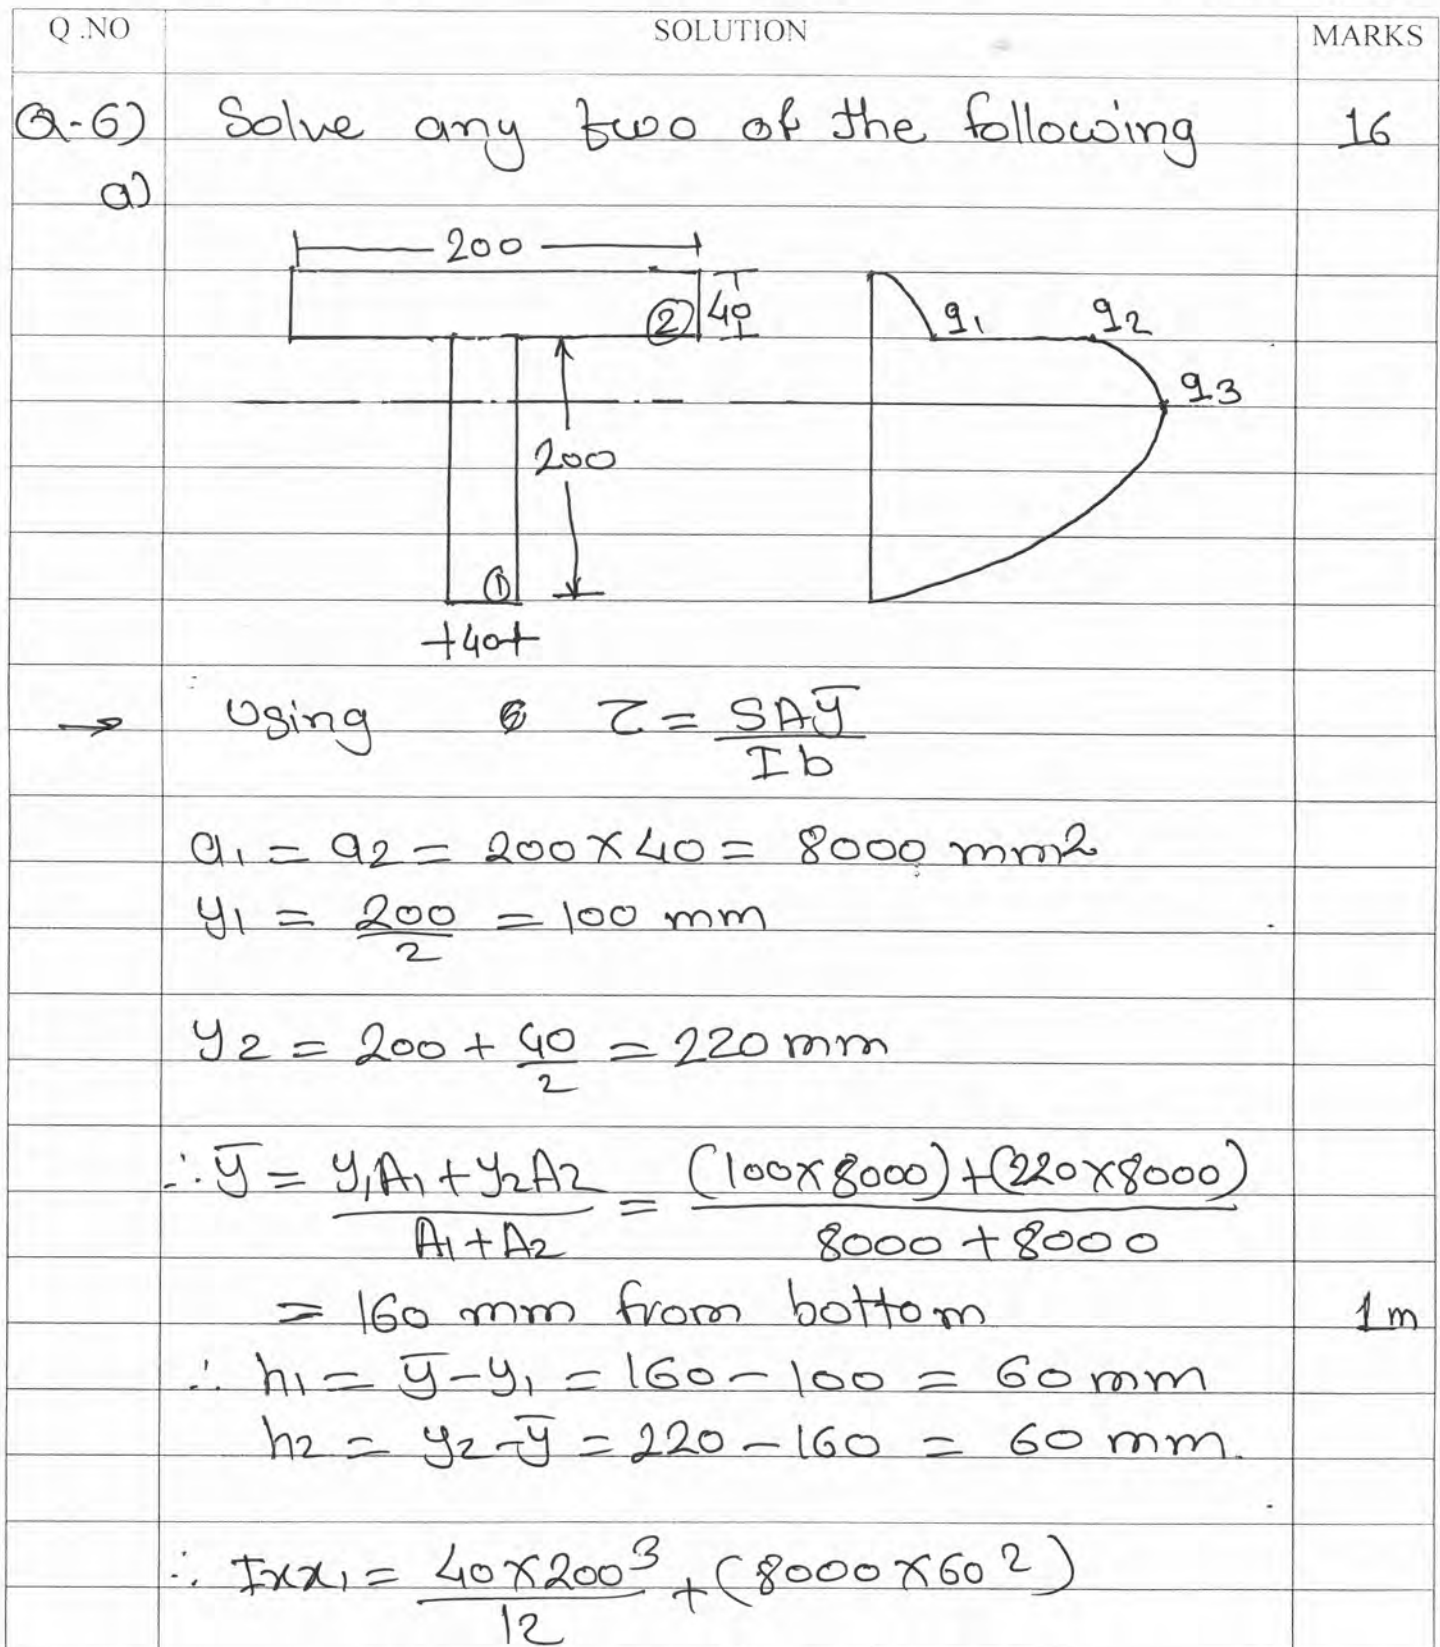 Q .NO SOLUTION MARKS
Q-6) Solve any two of the following 16
a)
200
② 40
q1 q2
q3
200
①
40
→ Using τ = SAȳ / Ib
a1 = a2 = 200 × 40 = 8000 mm2
y1 = 200 / 2 = 100 mm
y2 = 200 + 40 / 2 = 220 mm
∴ ȳ = y1A1 + y2A2 / A1 + A2 = (100×8000)+(220×8000) / 8000 + 8000
= 160 mm from bottom 1m
∴ h1 = ȳ - y1 = 160 - 100 = 60 mm
h2 = y2 - ȳ = 220 - 160 = 60 mm.
∴ Ixx1 = 40 × 200³ / 12 + (8000 × 60²)